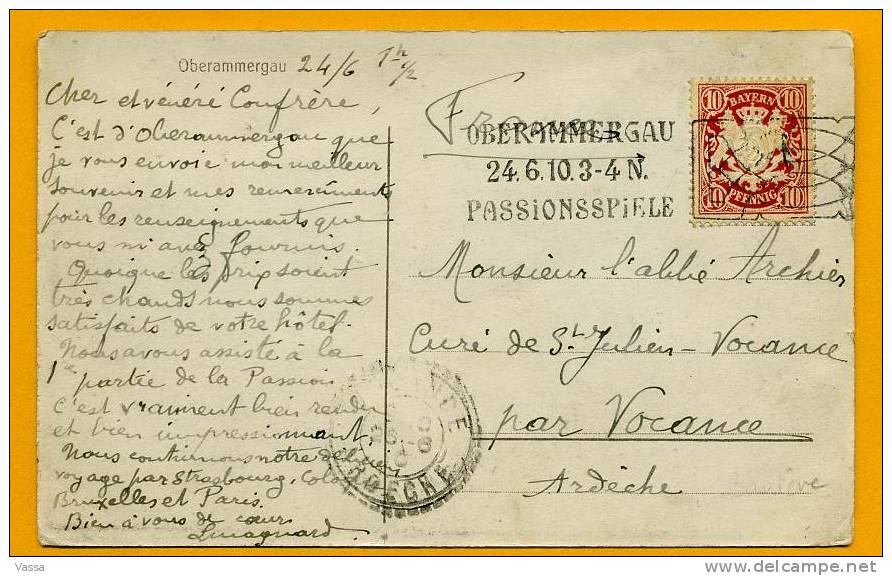 Oberammergau 24/6 7h 1/2
Cher et vénéré Confrère,
C'est d'Oberammergau que
je vous envoie mon meilleur
souvenir et mes remerciments
pour les renseignements que
vous m'avez fournis.
Quoique les prix soient
très chauds nous sommes
satisfaits de votre hôtel.
Nous avons assisté à la
1re partie de la Passion
C'est vraiment bien rendu
et bien impressionnant
Nous continuons notre
voyage par Strasbourg, Colo
Bruxelles et Paris.
Bien à vous de cœur
France
OBERAMMERGAU
24.6.10.3-4 N.
PASSIONSSPIELE
10 BAYERN 10
10 PFENNIG 10
Monsieur l'abbé Archier
Curé de St Julien-Vocance
par Vocance
Ardèche
ARDECHE
Vassa
www.delcampe.net